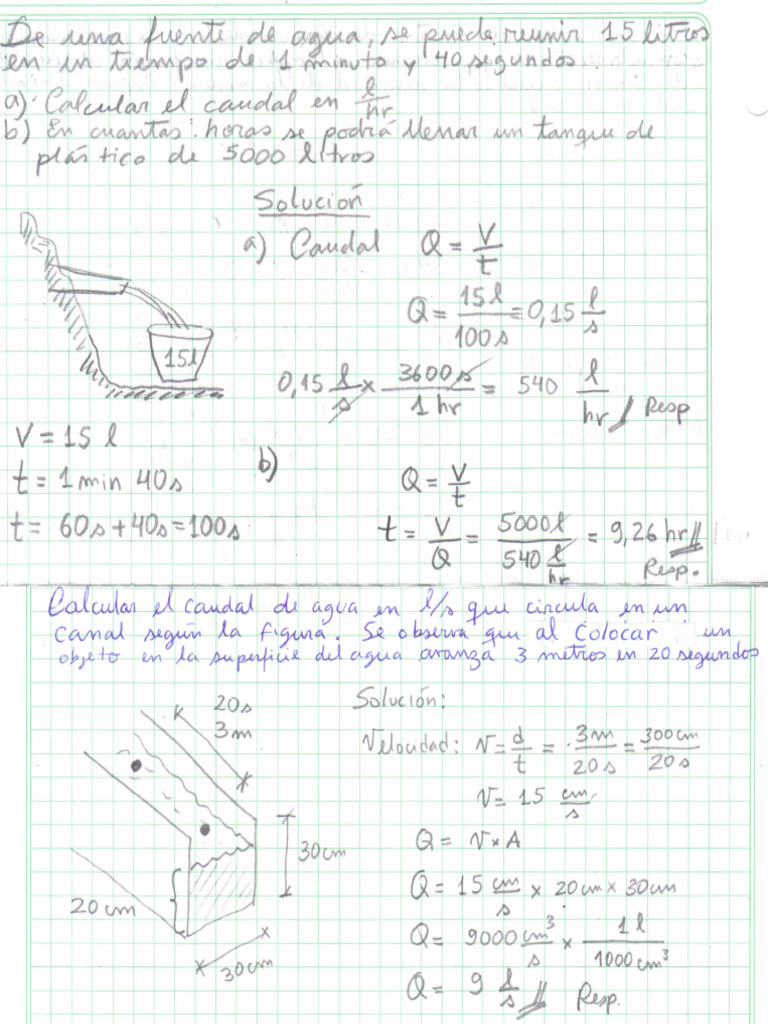 De una fuente de agua, se pueda reunir 15 litros
en un tiempo de 1 minuto y 40 segundos.
a) Calcular el caudal en l/hr
b) En cuantas horas se podrá llenar un tanque de
plástico de 5000 litros
Solución
a) Caudal Q = V/t
Q = 15 l/100 s = 0,15 l/s
15 l
0,15 l/s x 3600 s/1 hr = 540 l/hr // Resp
V = 15 l
t = 1 min 40 s
t = 60 s + 40 s = 100 s
b) Q = V/t
t = V/Q = 5000 l/540 l/hr = 9,26 hr //
Resp.
Calcular el caudal de agua en l/s que circula en un
canal según la figura. Se observa que al colocar un
objeto en la superficie del agua avanza 3 metros en 20 segundos
20 s
3 m
30 cm
20 cm
30 cm
Solución:
Velocidad: v = d/t = 3 m/20 s = 300 cm/20 s
v = 15 cm/s
Q = v x A
Q = 15 cm/s x 20 cm x 30 cm
Q = 9000 cm³/s x 1 l/1000 cm³
Q = 9 l/s // Resp.